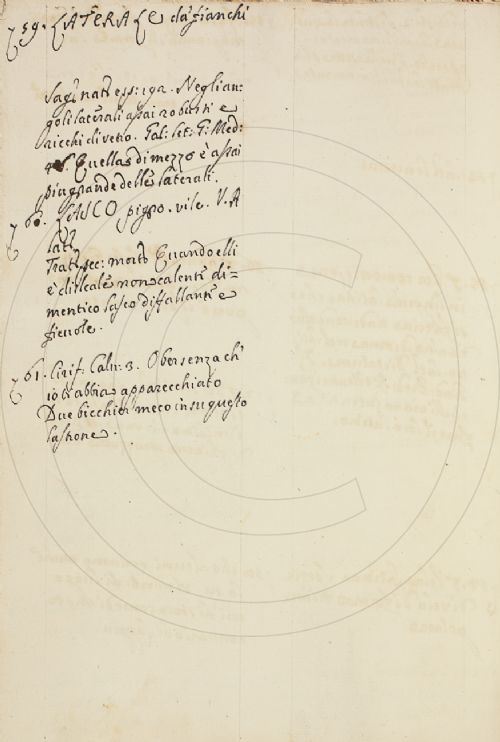 759. LATERALE da' fianchi
Sag: nat: esp: 192. Negli an-
goli laterali assai robusti e
ricchi di vetro. Gal: let: G: Med:
Quella di mezzo è assai
più grande delle laterali.
760. LASCO pigro. vile. V. A
lat:
Tratt. sec: mort: Quando elli
è disleale non calente di=
mentico lasco diffallante e
fievole.
761. Cirif. Calv: 3. Ober senza ch'
io t'abbia apparecchiato
Due bicchier meco in su questo
lastrone.